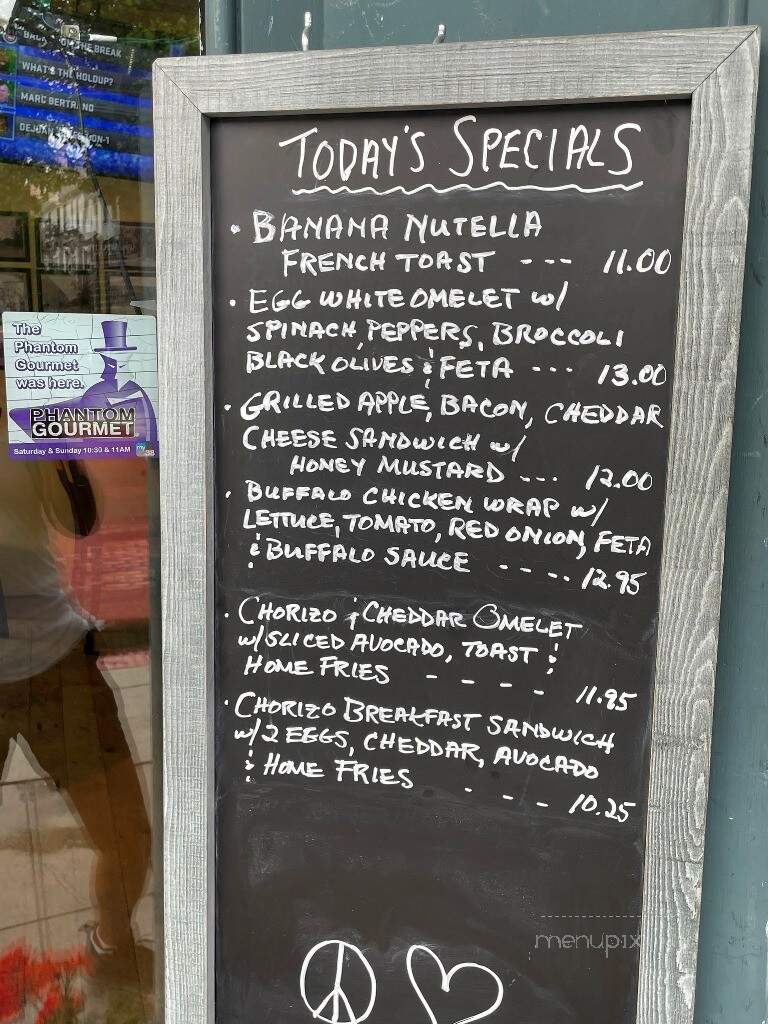 ON THE BREAK
WHAT'S THE HOLDUP?
MARC BERTRAND
The
Phantom
Gourmet
was here.
PHANTOM
GOURMET
Saturday & Sunday 10:30 & 11AM
my
38
TODAY'S SPECIALS
• BANANA NUTELLA
FRENCH TOAST --- 11.00
• EGG WHITE OMELET w/
SPINACH, PEPPERS, BROCCOLI
BLACK OLIVES & FETA --- 13.00
• GRILLED APPLE, BACON, CHEDDAR
CHEESE SANDWICH w/
HONEY MUSTARD --- 12.00
• BUFFALO CHICKEN WRAP w/
LETTUCE, TOMATO, RED ONION, FETA
& BUFFALO SAUCE ---- 12.95
• CHORIZO & CHEDDAR OMELET
w/SLICED AVOCADO, TOAST &
HOME FRIES ---- 11.95
• CHORIZO BREAKFAST SANDWICH
w/2 EGGS, CHEDDAR, AVOCADO
& HOME FRIES ---- 10.25
menupix